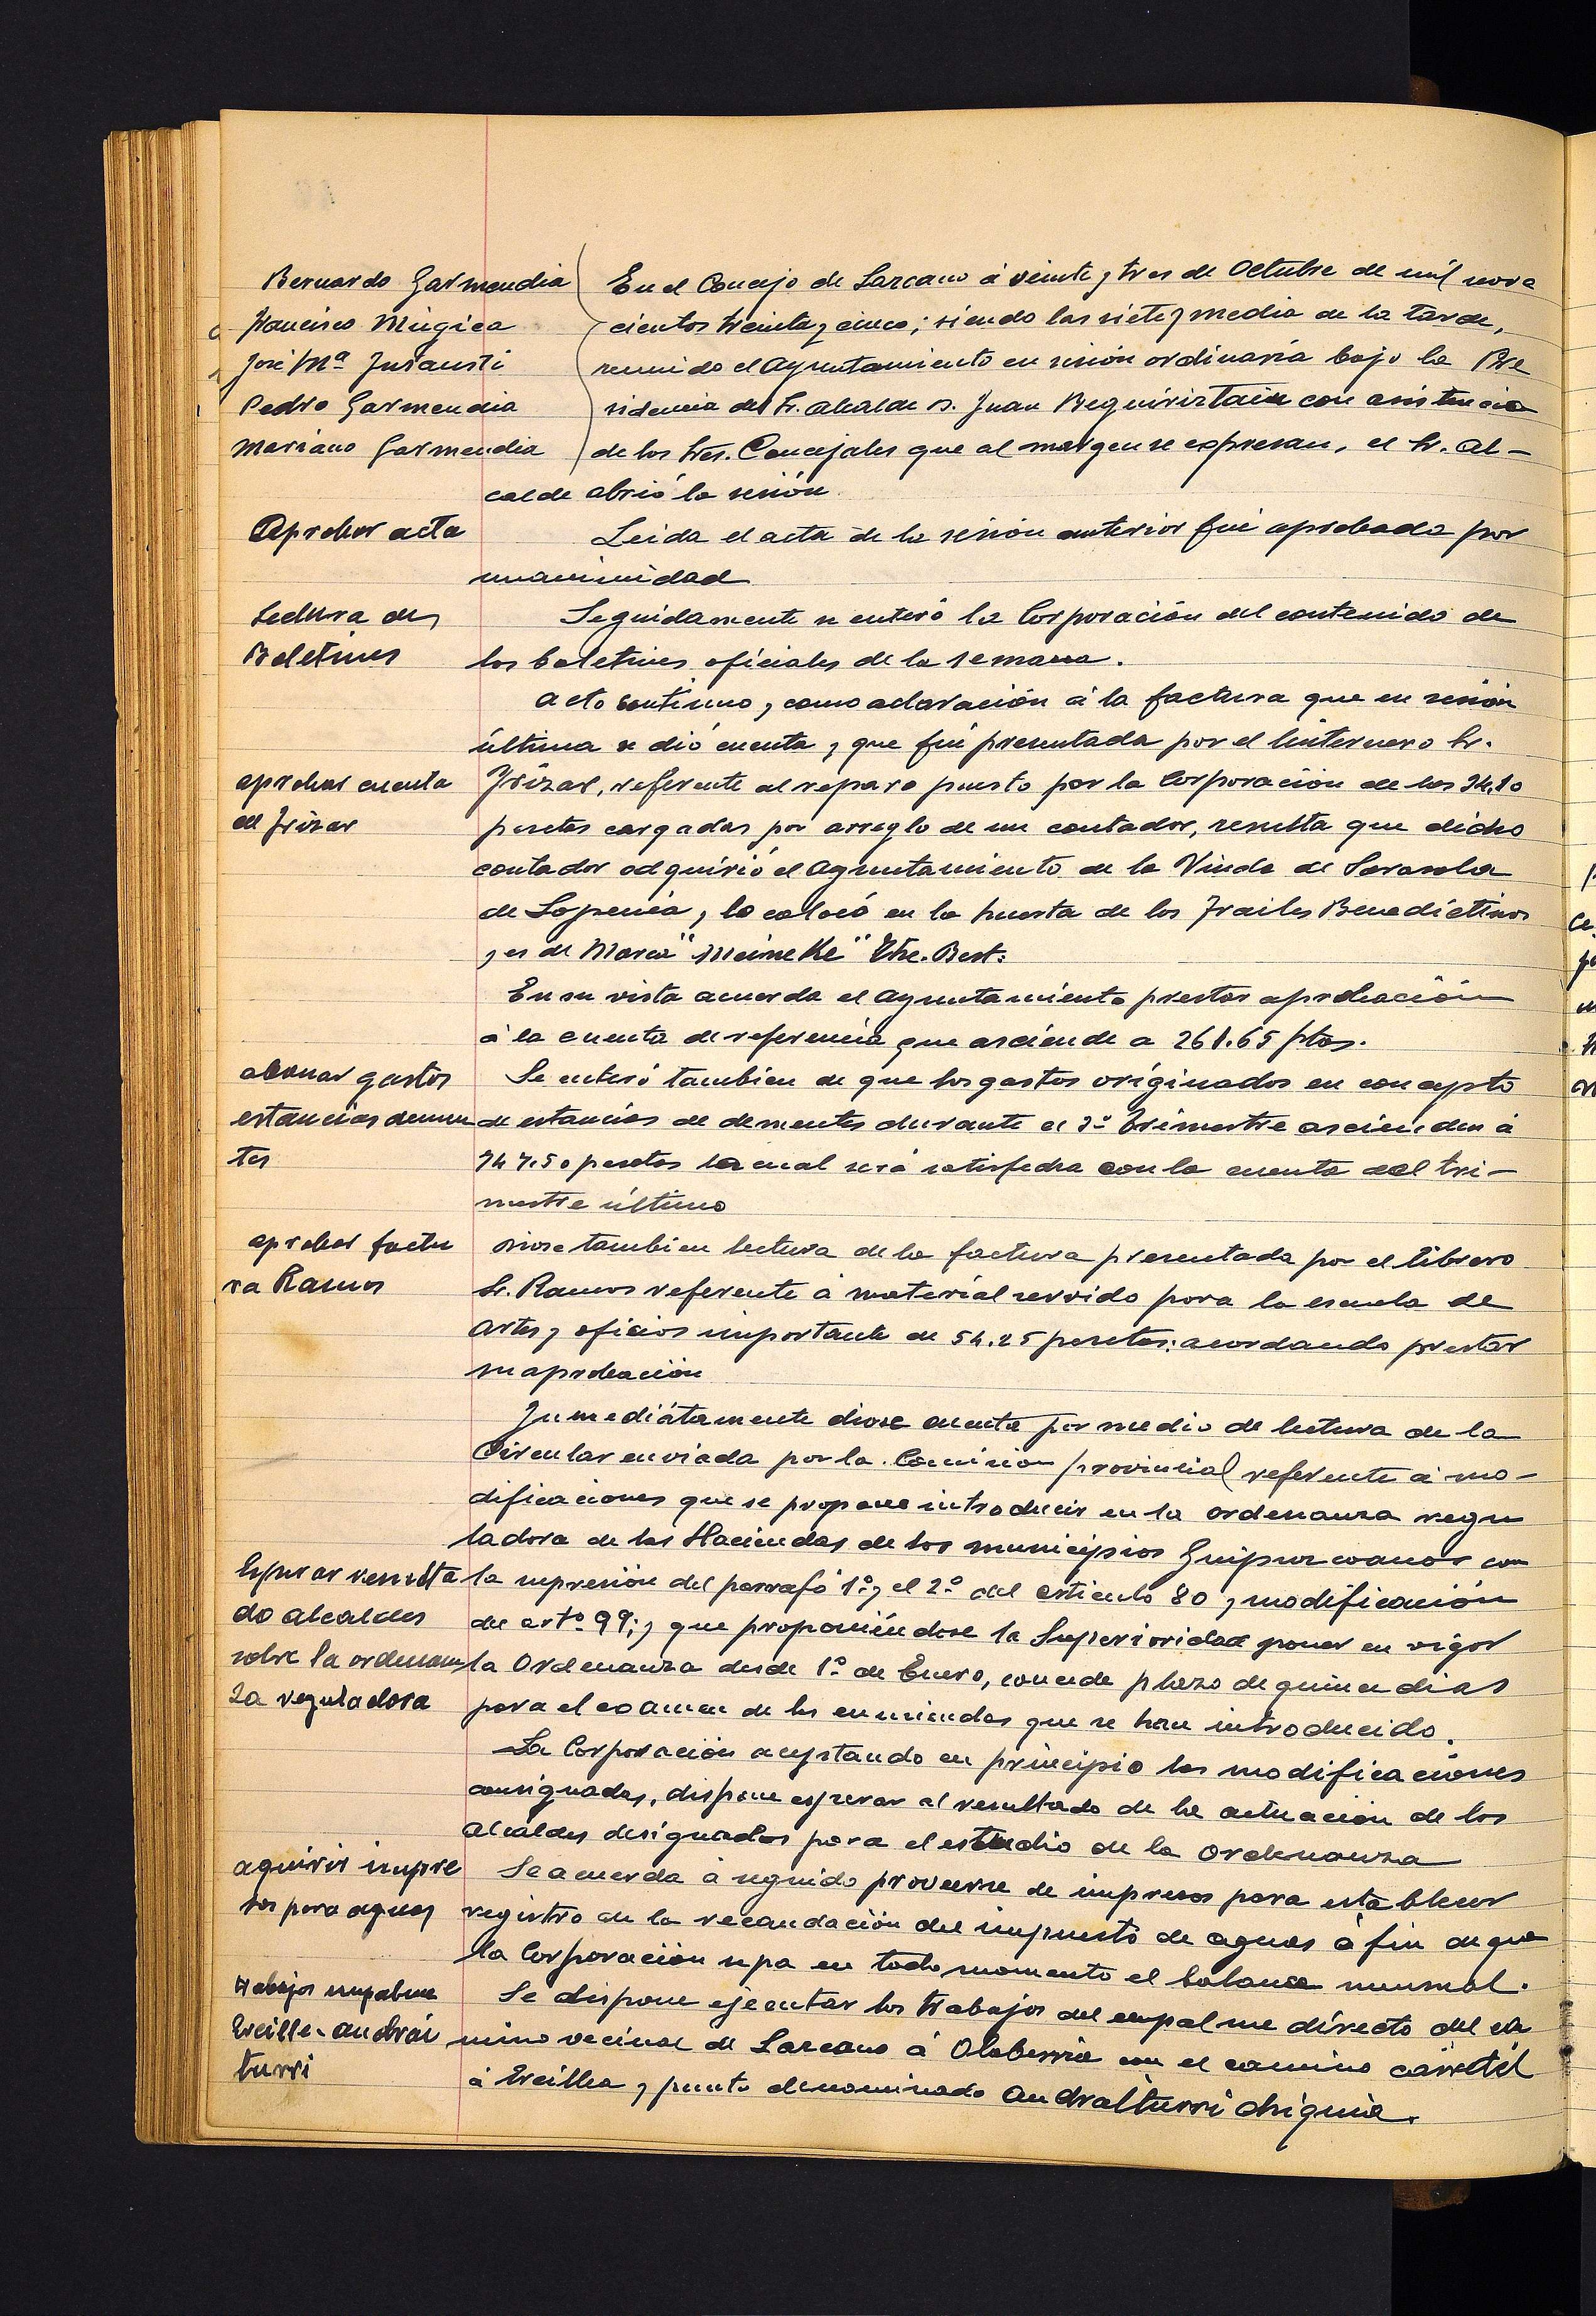 Bernardo Garmendia
Francisco Múgica
José Mª Insausti
Pedro Garmendia
Mariano Garmendia
En el Concejo de Lazcano á veinte y tres de Octubre de mil nove
cientos treinta y cinco; siendo las siete y media de la tarde,
reunido el Ayuntamiento en sesión ordinaria bajo la Pre
sidencia del Sr. Alcalde D. Juan Beguiristain con asistencia
de los Sres. Concejales que al margen se expresan, el Sr. Al-
calde abrió la sesión
Aprobar acta
Leida el acta de la sesión anterior fué aprobada por
unanimidad
Lectura de
Boletines
Seguidamente se enteró la Corporación del contenido de
los boletines oficiales de la semana.
Acto contínuo, como aclaración á la factura que en sesión
última se dió cuenta y que fué presentada por el linternero Sr.
aprobar cuenta
de Irizar
Irizar, referente al reparo puesto por la Corporación de las 34,10
pesetas cargadas por arreglo de un contador, resulta que dicho
contador adquirió el Ayuntamiento de la Viuda de Sarasola
de , lo colocó en la huerta de los Frailes Benedictinos
y es de Marca "Meineke"
En su vista acuerda el Ayuntamiento prestar aprobación
á la cuenta de referencia que asciende a 261.65 ptas.
abonar gastos
estancias demen
tes
Se enteró tambien de que los gastos originados en concepto
de estancias de dementes durante el 3º trimestre ascienden á
747.50 pesetas la cual será satisfecha con la cuenta del tri-
mestre último
aprobar factu
ra Ramos
Diose tambien lectura de la factura presentada por el librero
Sr. Ramos referente á material servido para la escuela de
Artes y oficios importante de 54.25 pesetas: acordando prestar
su aprobación
Inmediátamente diose cuenta por medio de lectura de la
Circular enviada por la Comision provincial referente á mo-
dificaciones que se propone introducir en la ordenanza regu
ladora de las Haciendas de los municipios Guipuzcoanos con
Esperar resulta
do alcaldes
sobre la ordenan
za reguladora
la supresión del parrafó 1º y el 2º del articulo 80 y modificación
de artº 99; y que proponiéndose la Superioridad poner en vigor
la Ordenanza desde 1º de Enero, concede plazo de quince dias
para el examen de las enmiendas que se han introducido.
La Corporación aceptando en principio las modificaciones
consignadas, dispone esperar al resultado de la actuación de los
alcaldes designados para el estudio de la Ordenanza
aquirir impre
sos para aguas
Se acuerda á seguido proveerse de impresos para establecer
registro de la recaudación del impuesto de aguas á fin de que
la Corporación sepa en todo momento el balance mensual.
trabajos empalme
Ercilla-andrai
turri
Se dispone ejecutar los trabajos del empalme directo del ca
mino vecinal de Lazcano á Olaberria con el camino carretil
á Ercilla y punto denominado Andraiturri chiquia.